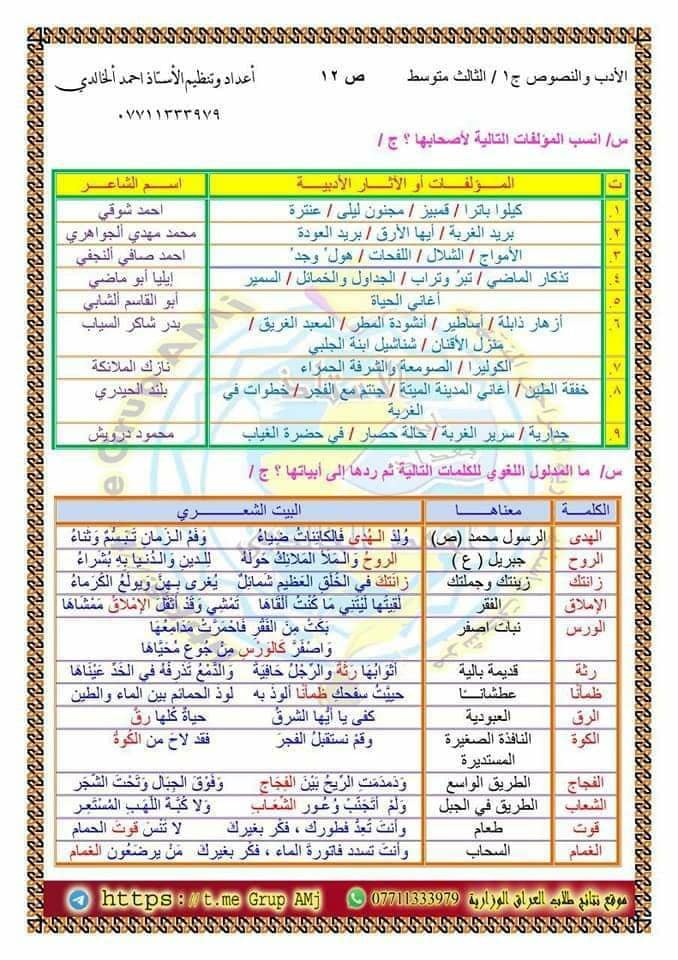 الأدب والنصوص ج١ / الثالث متوسط ص ١٢ أعداد وتنظيم الأستاذ احمد الخالدي
٠٧٧١١٣٣٣٩٧٩
س/ انسب المؤلفات التالية لأصحابها ؟ ج /
ت المؤلفات أو الأثار الأدبية اسم الشاعر
١. كيلوا باترا / قمبيز / مجنون ليلى / عنترة احمد شوقي
٢. بريد الغربة / أيها الأرق / بريد العودة محمد مهدي ألجواهري
٣. الأمواج / الشلال / اللفحات / هولُ وجدُ احمد صافي ألنجفي
٤. تذكار الماضي / تبرُ وتراب / الجداول والخمائل / السمير إيليا أبو ماضي
٥. أغاني الحياة أبو القاسم ألشابي
٦. أزهار ذابلة / أساطير / أنشودة المطر / المعبد الغريق /
منزل الأقنان / شناشيل ابنة الجلبي بدر شاكر السياب
٧. الكوليرا / الصومعة والشرفة الحمراء نازك الملائكة
٨. خفقة الطين / أغاني المدينة الميتة / جنتم مع الفجر / خطوات في
الغربة بلند الحيدري
٩. جدارية / سرير الغربة / حالة حصار / في حضرة الغياب محمود درويش
س/ ما المدلول اللغوي للكلمات التالية ثم ردها إلى أبياتها ؟ ج /
الكلمة معناها البيت الشعري
الهدى الرسول محمد (ص) وُلِدَ الهُدَى فَالكَائِنَاتُ ضِيَاءُ وَفَمُ الزَمانِ تَبَسُّمٌ وَثَناءُ
الروح جبريل ( ع ) الروحُ وَالمَلَأُ المَلائِكُ حَولَهُ لِلدينِ وَالدُنيا بِهِ بُشَراءُ
زانتك زينتك وجملتك زانَتكَ في الخُلُقِ العَظيمِ شَمائِلٌ يُغرى بِهِنَّ وَيولَعُ الكُرَماءُ
الإملاق الفقر لَقِيتُها لَيْتَنِي مَا كُنْتُ أَلْقَاهَا تَمْشِي وَقَدْ أَثْقَلَ الإمْلاقُ مَمْشَاهَا
الورس نبات اصفر بَكَتْ مِنَ الفَقْرِ فَاحْمَرَّتْ مَدَامِعُهَا
وَاصْفَرَّ كَالوَرْسِ مِنْ جُوعٍ مُحَيَّاهَا
رثة قديمة بالية أَثْوَابُهَا رَثَّةٌ والرِّجْلُ حَافِيَةٌ وَالدَّمْعُ تَذْرِفُهُ في الخَدِّ عَيْنَاهَا
ظمأنا عطشانا حييتُ سفحكِ ظمآنًا ألوذ به لوذ الحمائم بين الماء والطين
الرق العبودية كفى يا أيُّها الشرقُ حياةٌ كُلها رِقُّ
الكوة النافذة الصغيرة
المستديرة وقمْ نستقبلُ الفجرَ فقد لاحَ من الكُوةْ
الفجاج الطريق الواسع وَدَمدَمَتِ الرِّيحُ بَيْنَ الفِجَاج وَفَوْقَ الجِبَال وَتَحْتَ الشَّجَر
الشعاب الطريق في الجبل وَلَمْ أَتَجَنَّبْ وُعُورَ الشِّعَابِ وَلا كُبَّةَ اللَّهَبِ المُسْتَعِر
قوت طعام وأنتَ تُعِدُّ فطورك ، فكِّر بغيركَ لا تَنْسَ قوتَ الحمام
الغمام السحاب وأنتَ تسدد فاتورةَ الماء ، فكِّر بغيركَ مَنْ يرضَعُون الغمام
موقع نتائج طلاب العراق الوزارية 07711333979 https://t.me Grup AMj